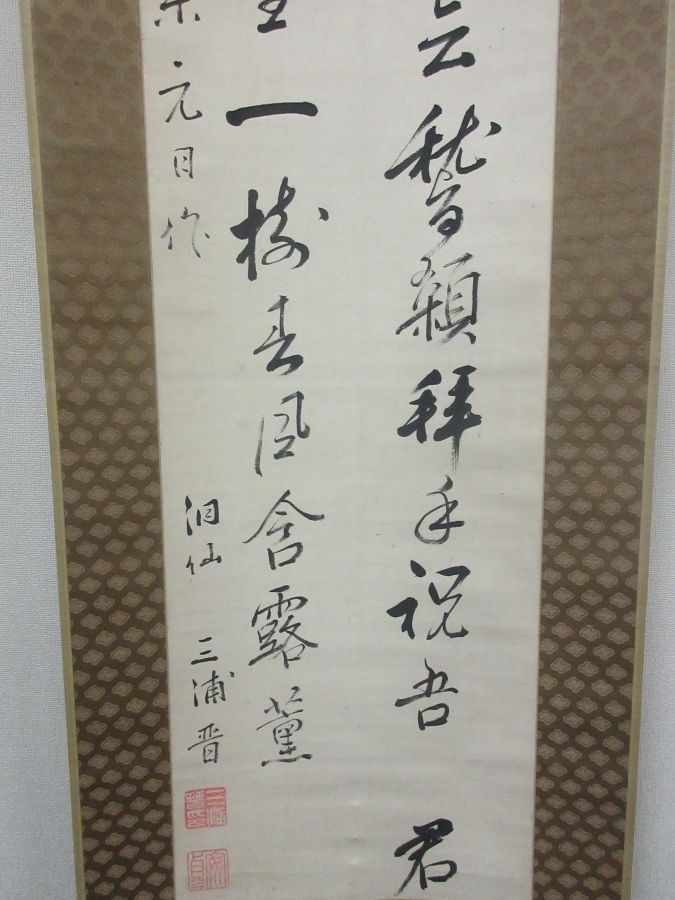 云稽顙拜手祝吾君
一樹春風含露薰
元日作
洞仙 三浦晋